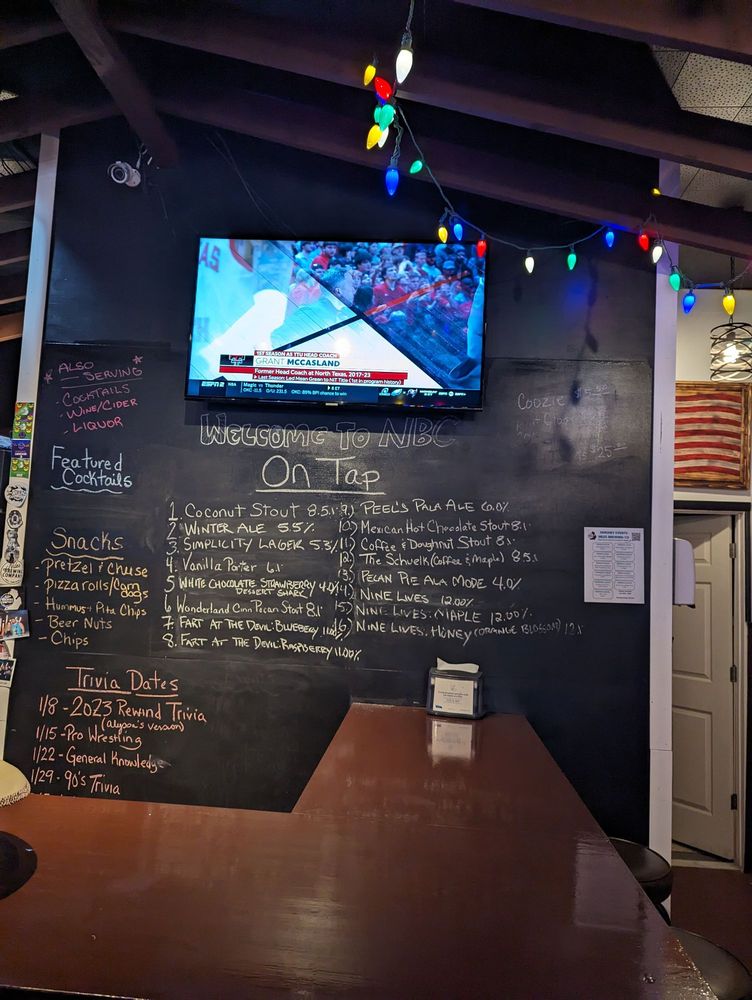 AS
1ST SEASON AS TTU HEAD COACH
GRANT MCCASLAND
Former Head Coach at North Texas, 2017-23
Last Season: Led Mean Green to NIT Title (1st in program history)
ESPN2 NBA Magic vs Thunder
ALSO SERVING
- COCKTAILS
- WINE/CIDER
- LIQUOR
Featured
Cocktails
Snacks
- Pretzel & Chuse
- Pizza rolls/Corn dogs
- Hummus & Pita Chips
- Beer Nuts
- Chips
Trivia Dates
1/8 - 2023 Rewind Trivia
(alyssa's version)
1/15 - Pro Wrestling
1/22 - General Knowledge
1/29 - 90's Trivia
WELCOME TO NBC
On Tap
1. Coconut Stout 8.5%
2. WINTER ALE 5.5%
3. SIMPLICITY LAGER 5.3%
4. Vanilla Porter 6%
5 WHITE CHOCOLATE STRAWBERRY
DESSERT SHARK
6 Wonderland Cinn Pecan Stout 8%
7. FART AT THE DEVIL: BLUEBERRY
8. FART AT THE DEVIL: RASPBERRY 11.00%
9) PEEL'S PALA ALE 6.0%
10) Mexican Hot Chocolate Stout 8%
11) Coffee & Doughnut Stout 8%
12) The Schwelk (Coffee & Maple) 8.5%
13) PECAN PIE ALA MODE 4.0%
NINE LIVES 12.00%
15) NINE LIVES: MAPLE 12.00%
16) NINE LIVES: HONEY (ORANGE BLOSSOM) 12%
COOZIE